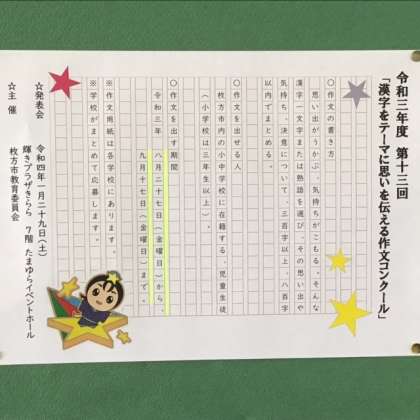 令和三年度 第十三回
「漢字をテーマに思いを伝える作文コンクール」
○作文の書き方
思い出がうかぶ、気持ちがこもる。そんな
漢字一文字または熟語を選び、その思い出や
気持ち、決意について、三百字以上、八百字
以内でまとめる。
○作文を出せる人
枚方市内の小中学校に在籍する、児童生徒
(小学校は三年生以上)。
○作文を出す期間
令和三年 八月二十七日(金曜日)から、
九月十七日(金曜日)まで。
※作文用紙は各学校にあります。
※学校がまとめて応募します。
☆発表会 令和四年一月二十九日(土)
輝きプラザきらら 7階 たまゆらイベントホール
☆主催 枚方市教育委員会